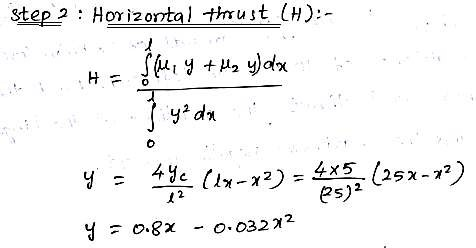 Step 2 : Horizontal thrust (H):-
H = ∫₀ˡ (μ₁ y + μ₂ y) dx / ∫₀ˡ y² dx
y = 4y꜀/l² (lx - x²) = 4×5/(25)² (25x - x²)
y = 0.8x - 0.032x²